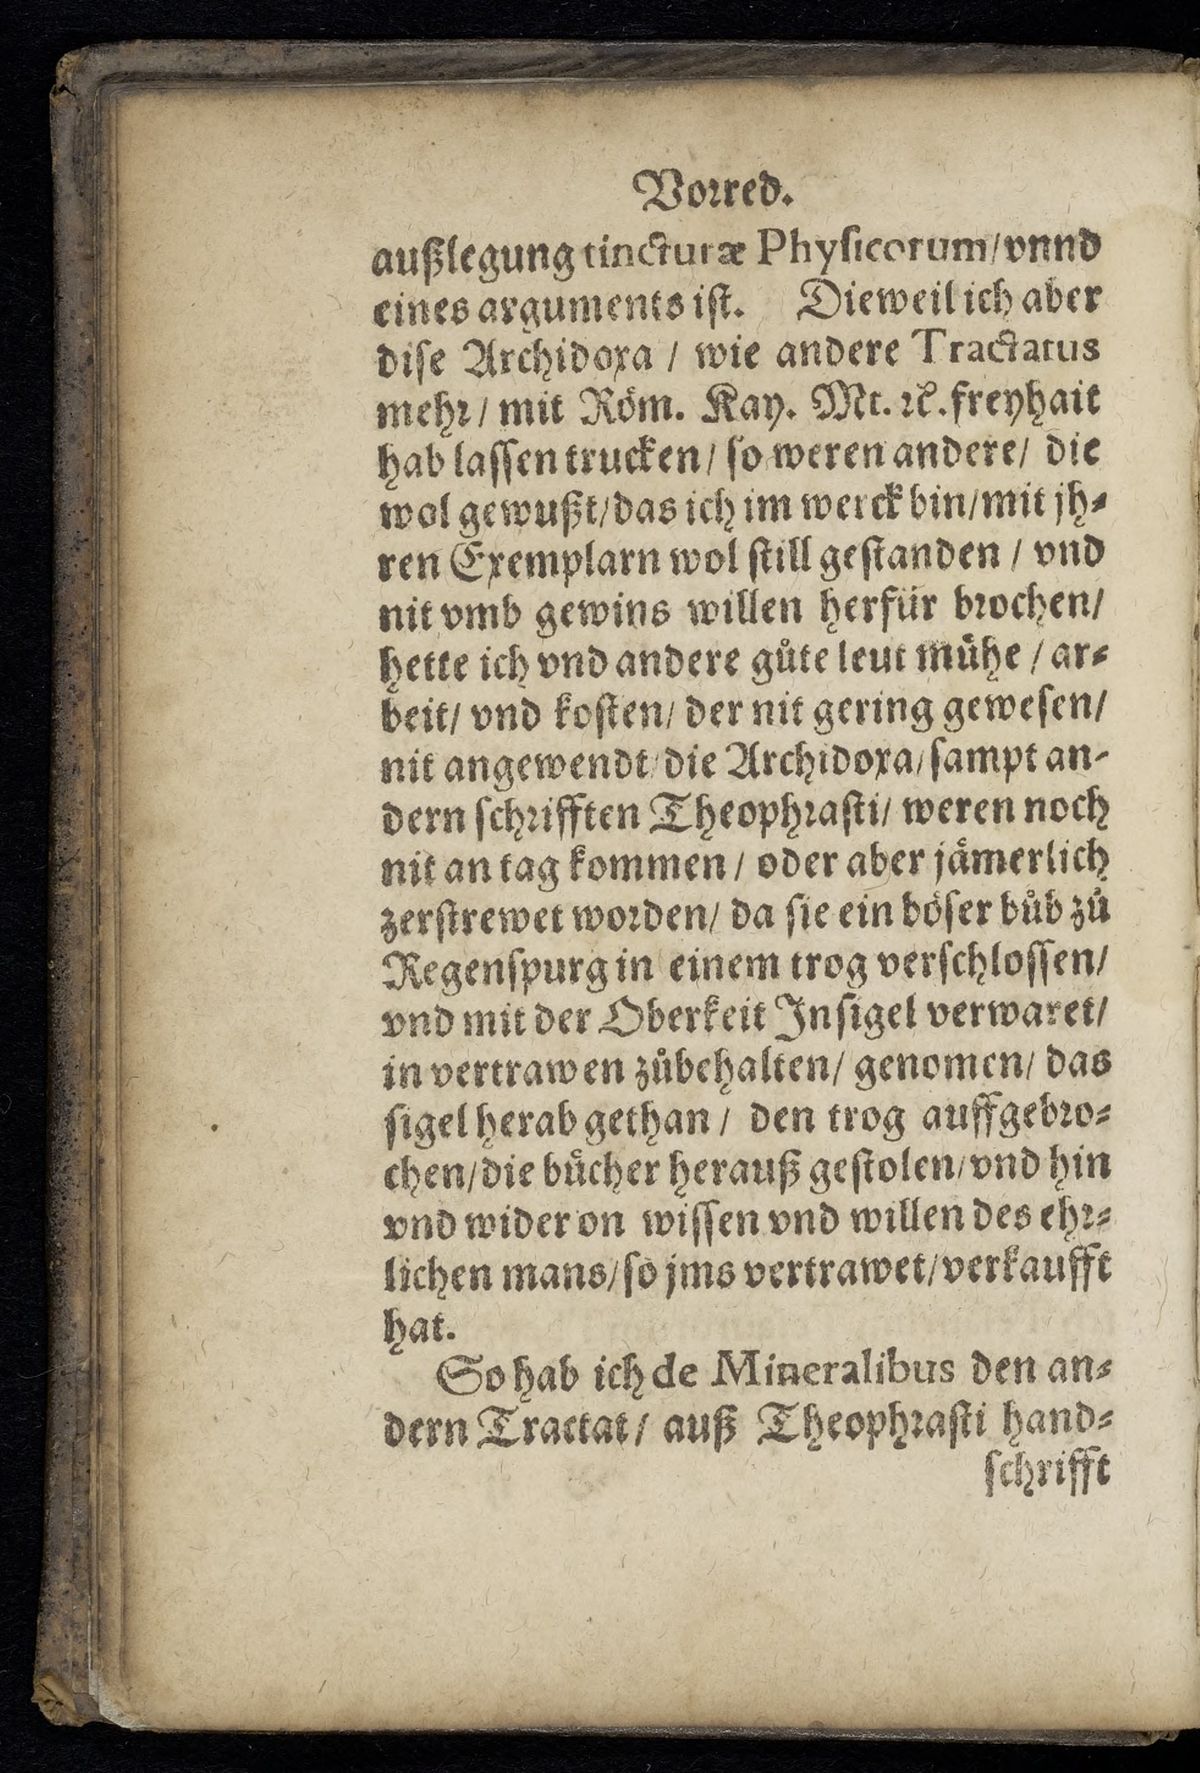 Vorred.
außlegung tincturæ Physicorum/ vnnd
eines arguments ist. Dieweil ich aber
dise Archidoxa / wie andere Tractatus
mehr / mit Röm. Kay. Mt. ꝛc. freyhait
hab lassen trucken / so weren andere / die
wol gewußt / das ich im werck bin / mit jh⸗
ren Exemplarn wol still gestanden / vnd
nit vmb gewins willen herfür brochen /
hette ich vnd andere gůte leut mühe / ar⸗
beit / vnd kosten / der nit gering gewesen /
nit angewendt / die Archidoxa / sampt an⸗
dern schrifften Theophrasti / weren noch
nit an tag kommen / oder aber jämerlich
zerstrewet worden / da sie ein böser bůb zů
Regenspurg in einem trog verschlossen /
vnd mit der Oberkeit Insigel verwaret /
in vertrawen zůbehalten / genomen / das
sigel herab gethan / den trog auffgebro⸗
chen / die bücher herauß gestolen / vnd hin
vnd wider on wissen vnd willen des ehr⸗
lichen mans / so jms vertrawet / verkaufft
hat.
So hab ich de Mineralibus den an⸗
dern Tractat / auß Theophrasti hand⸗
schrifft